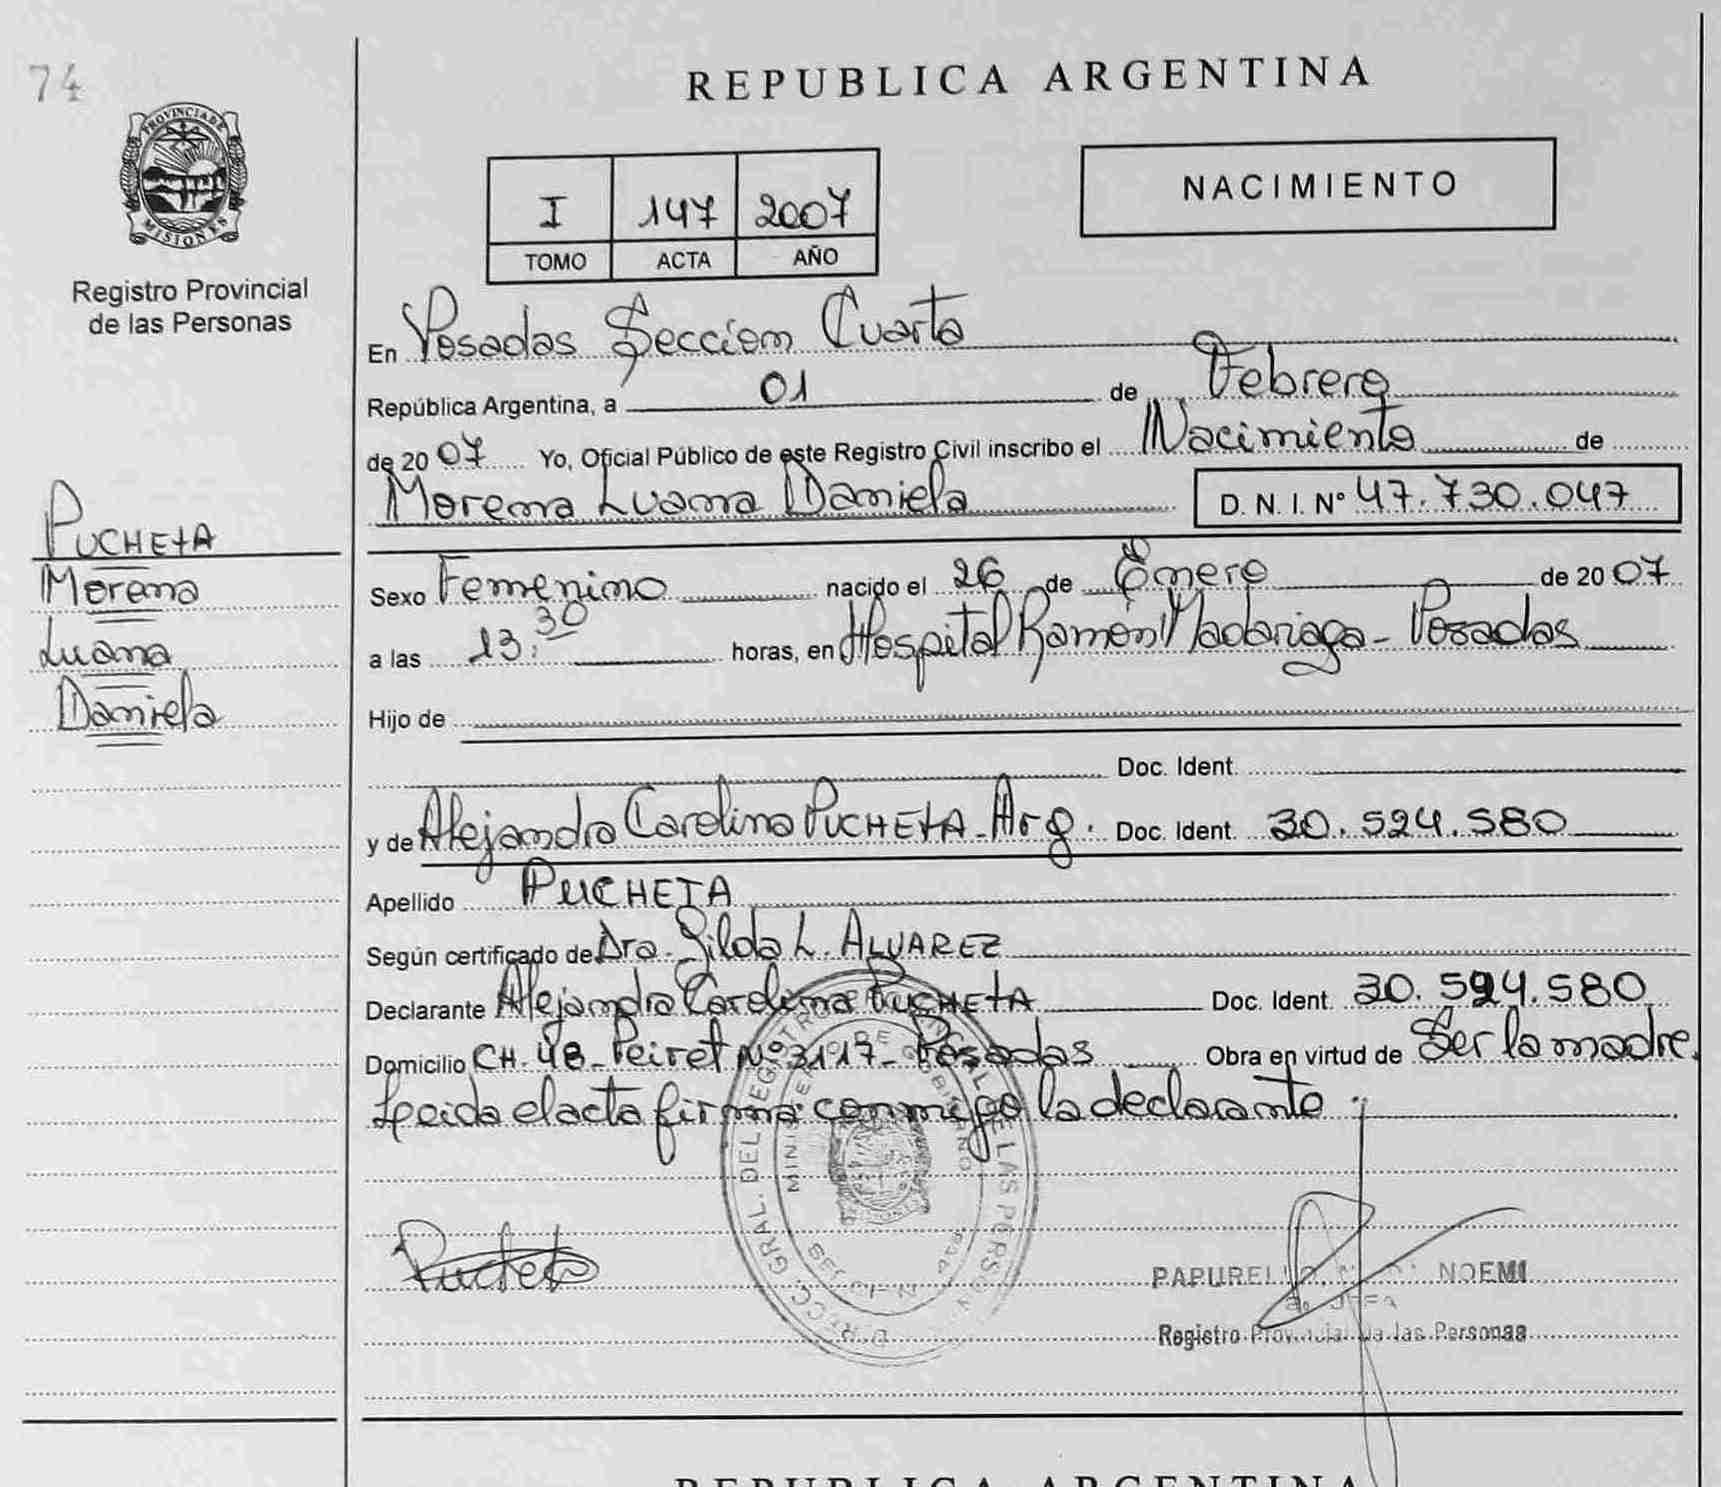 74
REPUBLICA ARGENTINA
PROVINCIA DE
MISIONES
Registro Provincial
de las Personas
NACIMIENTO
I 147 2007
TOMO ACTA AÑO
En Posadas Seccion Cuarta
República Argentina, a 01 de Febrero
de 2007 Yo, Oficial Público de este Registro Civil inscribo el Nacimiento de
Morena Luana Daniela D. N. I. Nº 47.730.047
PUCHETA
Morena
Luana
Daniela
Sexo Femenino nacido el 26 de Enero de 2007
a las 13:30 horas, en Hospital Ramón Madariaga - Posadas
Hijo de
Doc. Ident.
y de Alejandra Carolina PUCHETA - Arg. Doc. Ident. 30.524.580
Apellido PUCHETA
Según certificado de Dra. Gilda L. ALVAREZ
Declarante Alejandra Carolina PUCHETA Doc. Ident. 30.524.580
Domicilio CH. 48 - Peiret Nº 3117 - Posadas Obra en virtud de Ser la madre.
Leida el acta firma conmigo la declarante
Pucheta
NOEMI
Registro Provincial de las Personas
REPUBLICA ARGENTINA